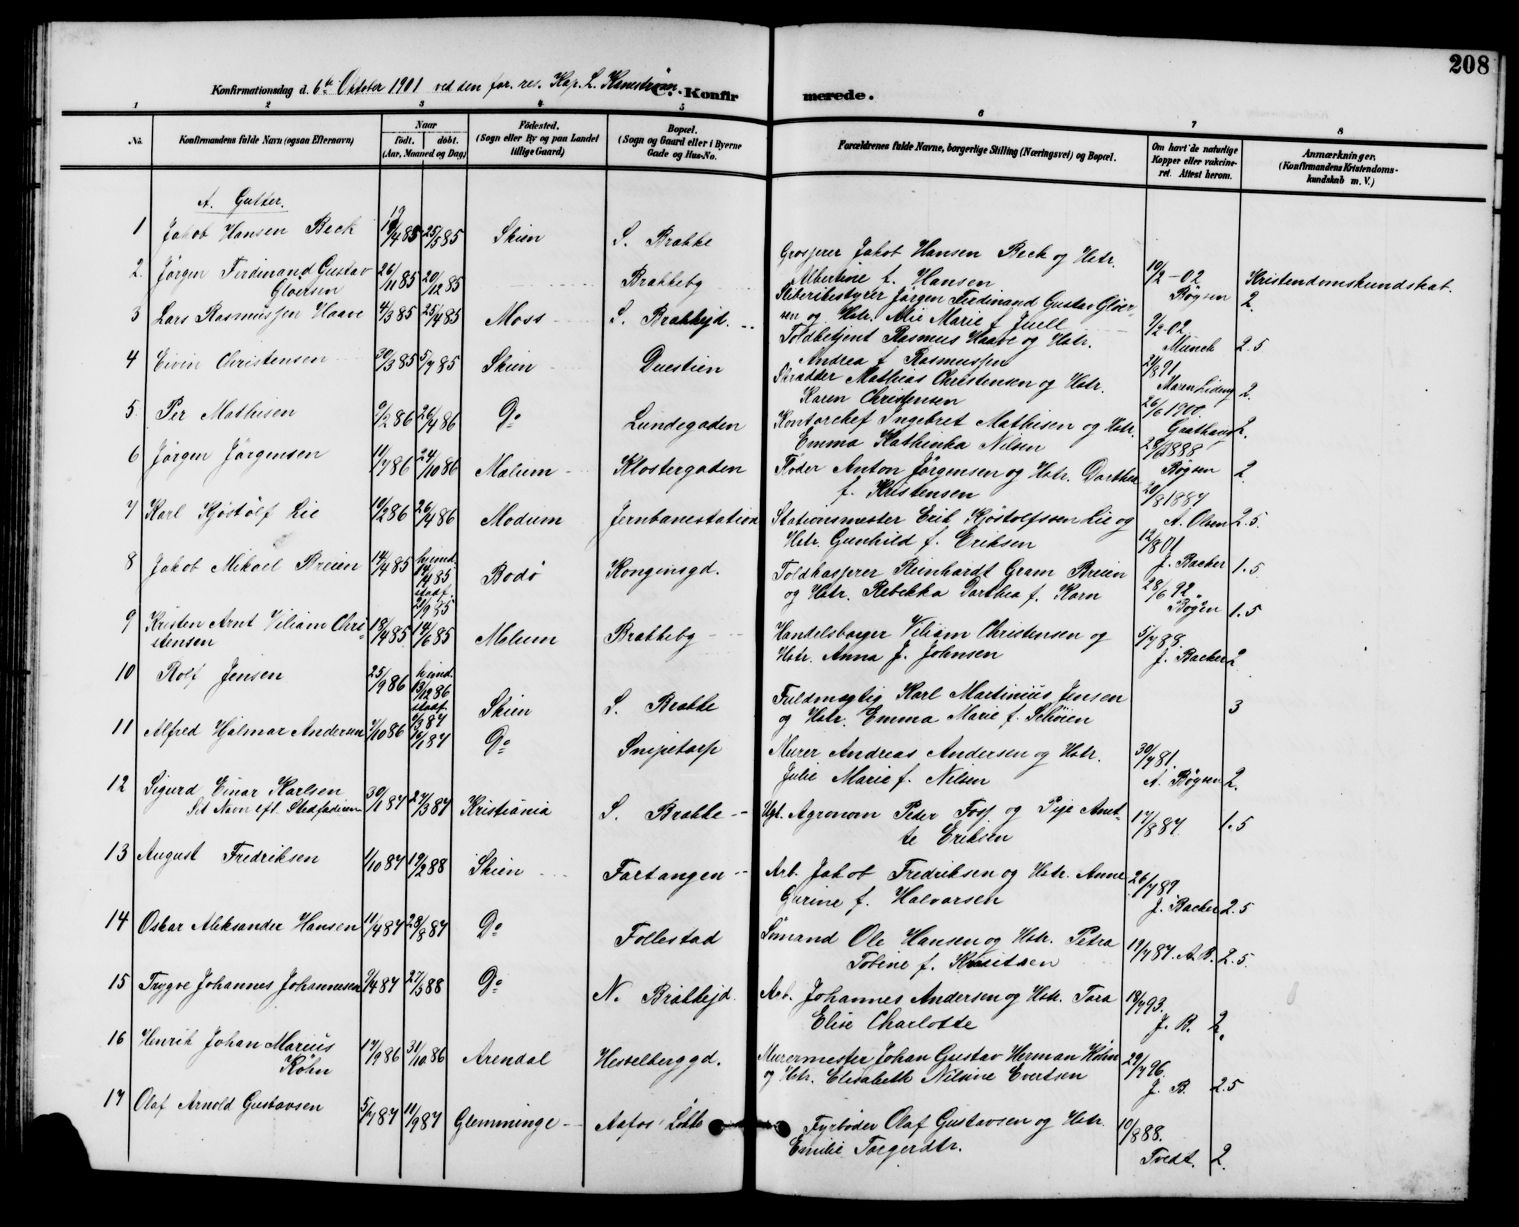 208
Konfirmationsdag d. 6te Oktober 1901 ved den for. res. Kap. L. C. Konfirmerede.
1 2 3 4 5 6 7 8
No. Konfirmandens fulde Navn (ogsaa Efternavn) Naar født. døbt. (Aar, Maaned og Dag) Fødested. (Sogn eller By og paa Landet tillige Gaard) Bopæl. (Sogn og Gaard eller i Byerne Gade og Hus-No. Forældrenes fulde Navne, borgerlige Stilling (Næringsvei) og Bopæl. Om havt de naturlige Kopper eller vakcineret. Attest herom. Anmærkninger. (Konfirmandens Kristendomskundskab m. V.)
A. Gutter.
1 Jakob Hansen Beck 19/4 85 25/5 85 Skien S. Brække Grosserer Jakob Hansen Beck og Hstr. Albertine f. Hansen 10/2 - 02 Bøgsen Kristendomskundskab. 2.
2. Jørgen Ferdinand Gustav Gløersen 26/11 85 20/12 85 Brækkeby Jørgen Ferdinand Gustav Gløersen og Hstr. Alie Marie f. Juell 9/2-02 Münch 2.5
3 Lars Rasmussen Haave 4/3 85 25/4 85 Moss S. Brækkejd. Toldbetjent Rasmus Haave og Hstr. Andrea f. Rasmussen 24/8 91 Maren 2.
4 Eivin Christensen 30/3 85 5/7 85 Skien Duestien Skrædder Mathias Christensen og Hstr. Karen Christensen 26/6 1900. 2.
5 Per Mathisen 9/2 86 26/4 86 Do Lundegaden Kontorchef Ingebret Mathisen og Hstr. Emma Kathinka Nilsen 1888 Bøgsen 2
6 Jørgen Jørgensen 11/7 86 24/10 86 Mælum Klostergaden Anton Jørgensen og Hstr. Dorthea f. Kristensen 20/8 1887 A. Olsen 2.5.
7 Karl Kjøstolf Lie 10/2 86 26/4 86 Modum Jernbanestation Stationsmester Erik Kjøstolfsen Lie og Hstr. Gunhild f. Eriksen 12/8 01 J. Backer 1.5
8 Jakob Mikael Breien 14/4 85 hjemd. 14/4 85 stadf. 21/9 85 Bodø Kongensgd. Toldkasserer Reinhardt Gram Breien og Hstr. Rebekka Dorthea f. Korn 28/6 92. Bøgen 1.5
9 Kristen Arnt Viliam Christensen 18/4 85 14/6 85 Mælum Brækkeby Handelsborger Viliam Christensen og Hstr. Anna J. Johnsen 5/7 88. J. Backer 2
10 Rolf Jensen 25/9 86 hjemd. 13/12 86 stadf. 9/3 87 Skien S. Brække Fuldmægtig Karl Martinius Jensen og Hstr. Emma Marie f. Schøien 3
11 Alfred Hjalmar Andersen 7/10 86 12/1 87 Do Snipetorp Murer Andreas Andersen og Hstr. Julie Marie f. Nilsen 30/7 81. A. Bøgsen 2.
12 Sigurd Einar Karlsen 30/1 87 27/3 87 Kristiania S. Brække Ugt. Agronom Peder Foss og Pige Anette Eriksen 17/8 87. 1.5
13 August Fredriksen 1/10 87 19/2 88 Skien Fartangen Arb. Jakob Fredriksen og Hstr. Anne Gurine f. Halvorsen 26/7 89 J. Backer 2.5
14 Oskar Aleksander Hansen 11/4 87 28/8 87 Do Follestad Sømand Ole Hansen og Hstr. Petra Tobine f. Knutsen 19/7 87. A. B. 2.5.
15 Trygve Johannes Johannesen 9/4 87 27/3 88 Do N. Brækkejd. Arb. Johannes Andersen og Hstr. Tora Elise Charlotte 18/7 93. J. B. 2.
16 Henrik Johan Marius Køhn 17/9 86 31/10 86 Arendal Hesselberggd. Murermester Johan Gustav Herman Køhn og Hstr. Elisabeth Nilsine Evertsen 29/7 96. J. B. 2.5
17 Olaf Arnold Gustavsen 5/7 87 11/9 87 Glemminge Aafos Løkke Fyrbøder Olaf Gustavsen og Hstr. Emilie Torgerdtr. 10/8 88. Tvedt. 2.